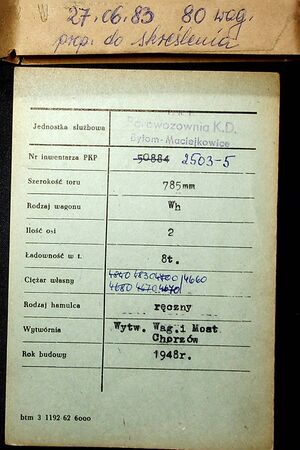 27.06.83 80 wag.
prop. do skreślenia
Jednostka służbowa
Parowozownia K.D.
Bytom-Maciejkowice
Nr inwentarza PKP 50884 2503-5
Szerokość toru 785mm
Rodzaj wagonu Wh
Ilość osi 2
Ładowność w t. 8t.
Ciężar własny
4660
4680 4670
Rodzaj hamulca ręczny
Wytwórnia Wytw. Wag.i Most
Chorzów
Rok budowy 1948r.
btm 3 1192 62 6000